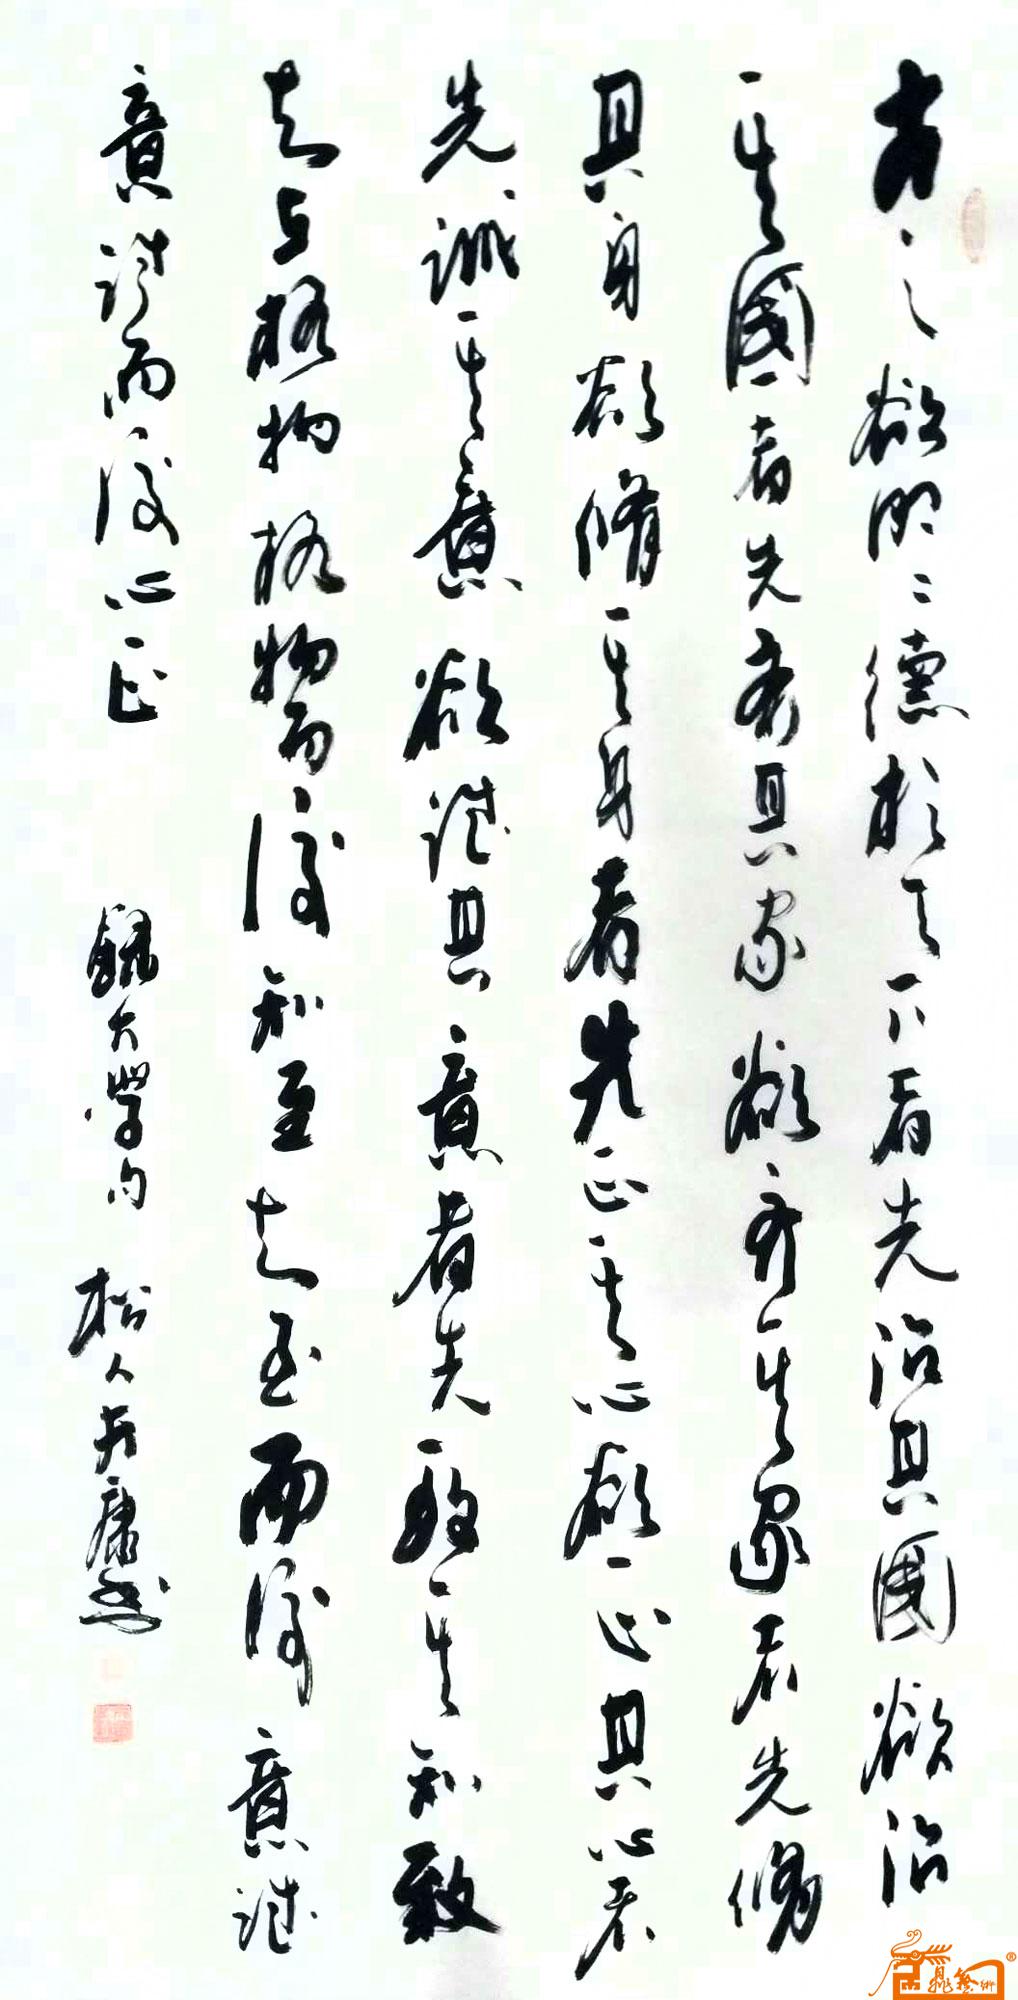 古之欲明々德於天下者先治其國欲治
其國者先齊其家欲齊其家者先脩
其身欲脩其身者先正其心欲正其心者
先誠其意欲誠其意者先致其知致
知在格物格物而後知至知至而後意誠
意誠而後心正
錄大學句 松人 康書